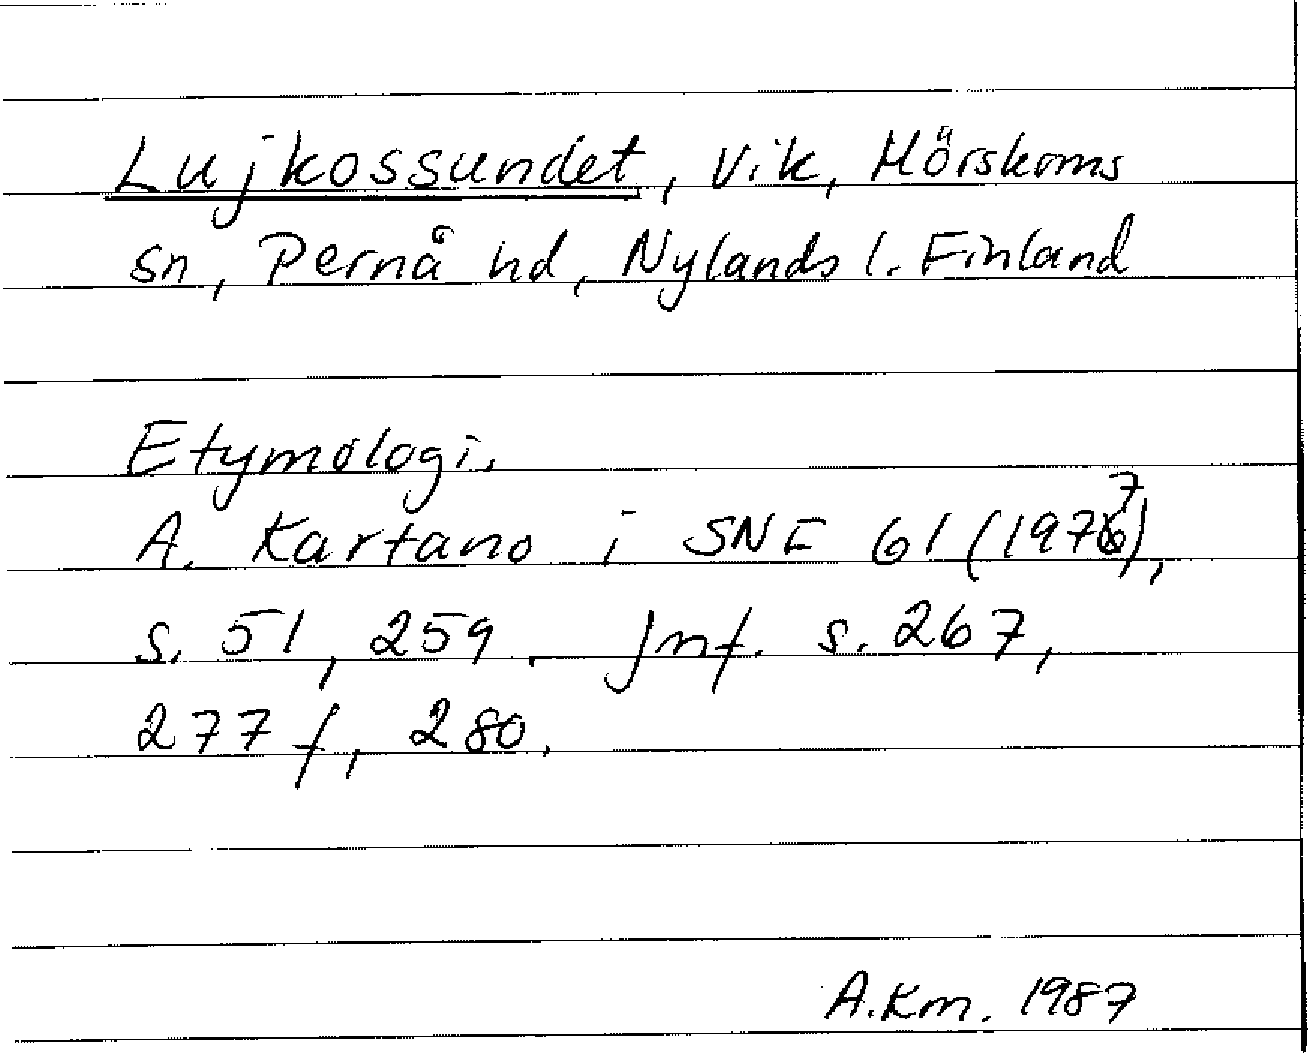 Lujkossundet, vik, Mörskoms
sn, Pernå hd, Nylands l. Finland
Etymologi.
A. Kartano i SNF 61 (1977),
s. 51, 259. Jmf. s. 267,
277 f, 280.
A.Km. 1987